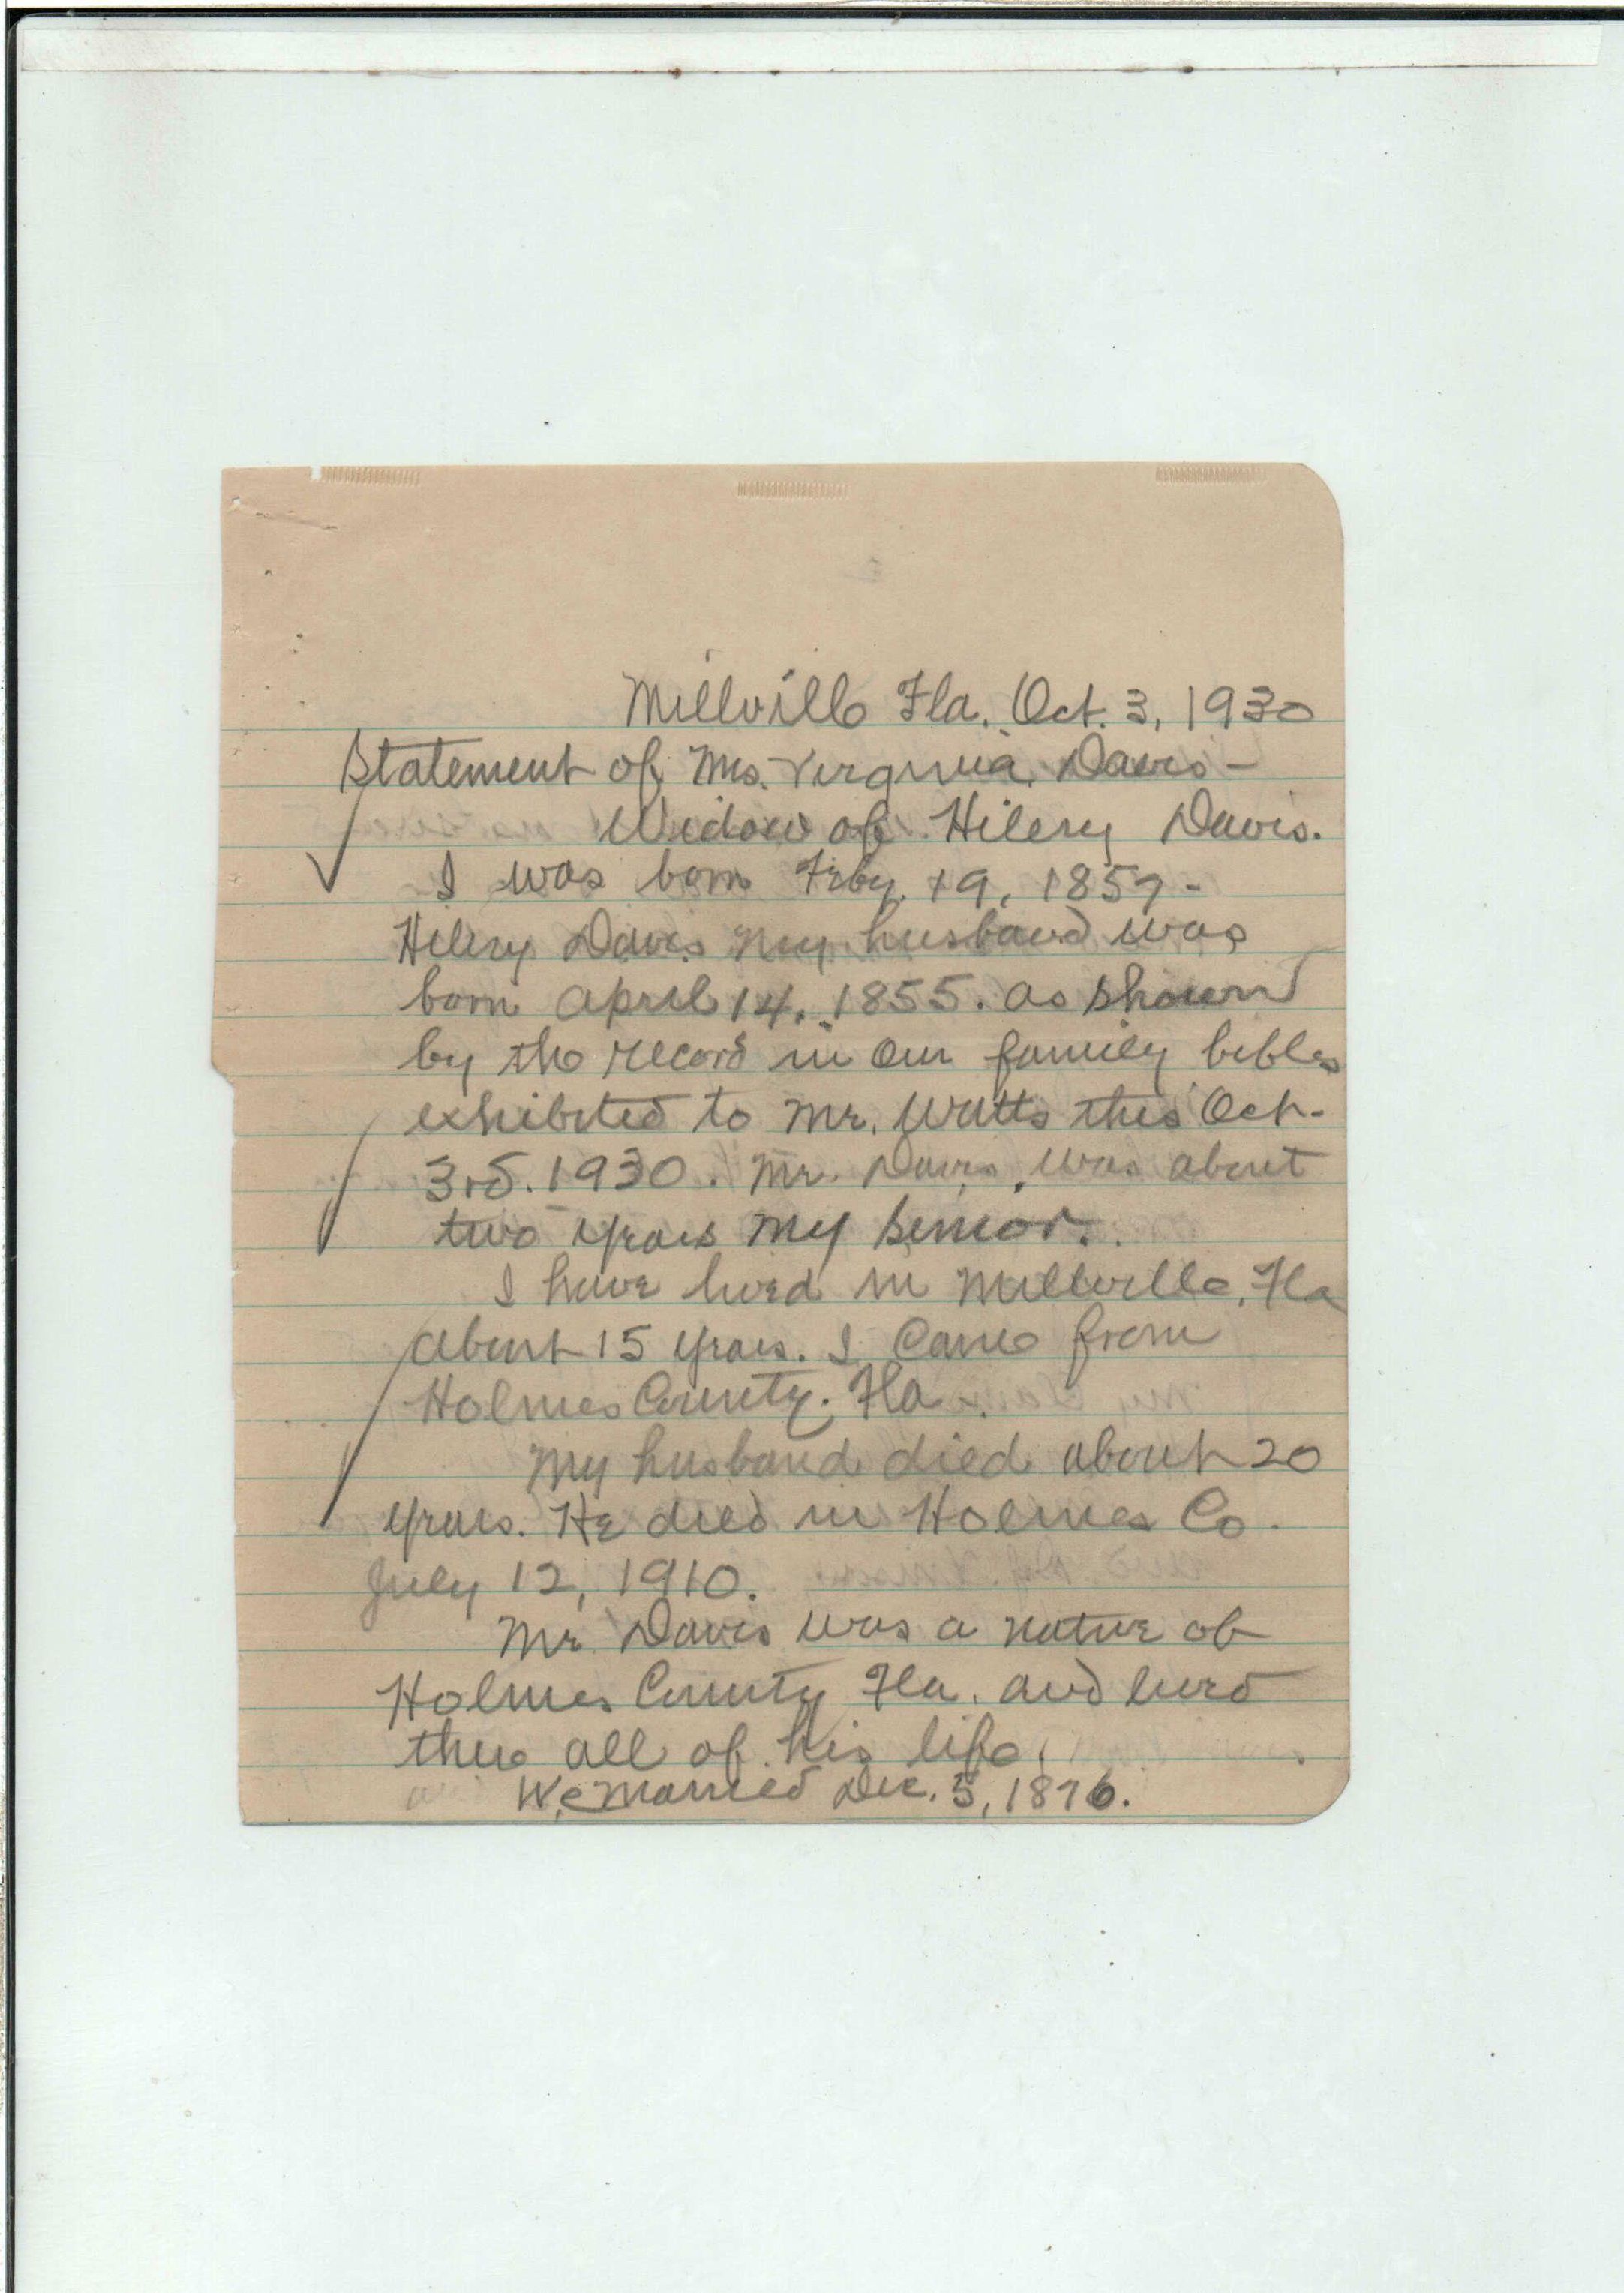 Millville Fla. Oct. 3, 1930
Statement of Mrs. Virginia Davis -
Widow of Hilery Davis.
I was born Feby. 19, 1857 -
Hilery Davis my husband was
born april 14, 1855. as shown
by the record in our family bible
exhibited to Mr. Watts this Oct.
3rd. 1930. Mr. Davis was about
two years my senior.
I have lived in Millville, Fla
about 15 years. I came from
Holmes County. Fla.
My husband died about 20
years. He died in Holmes Co.
July 12, 1910.
Mr Davis was a native of
Holmes County Fla. and lived
there all of his life.
We married Dec. 5, 1876.